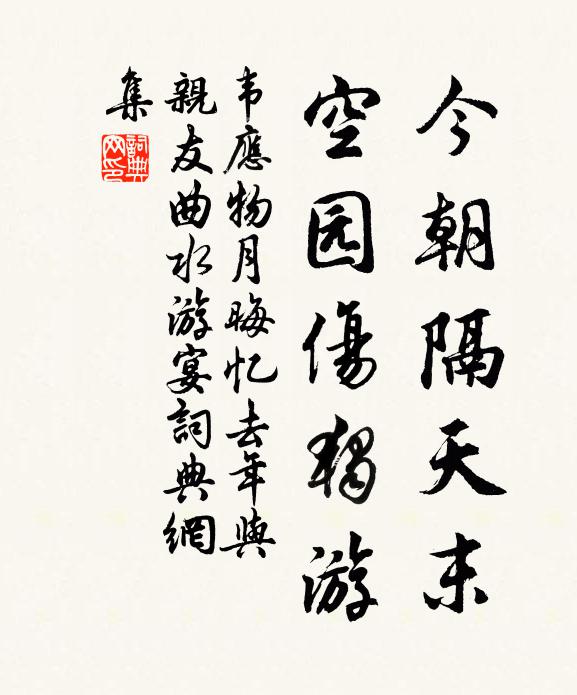 今朝隔天末
空园傷獨游
韦應物月晦忆去年與
親友曲水游宴詞典網
集
詞典
网印